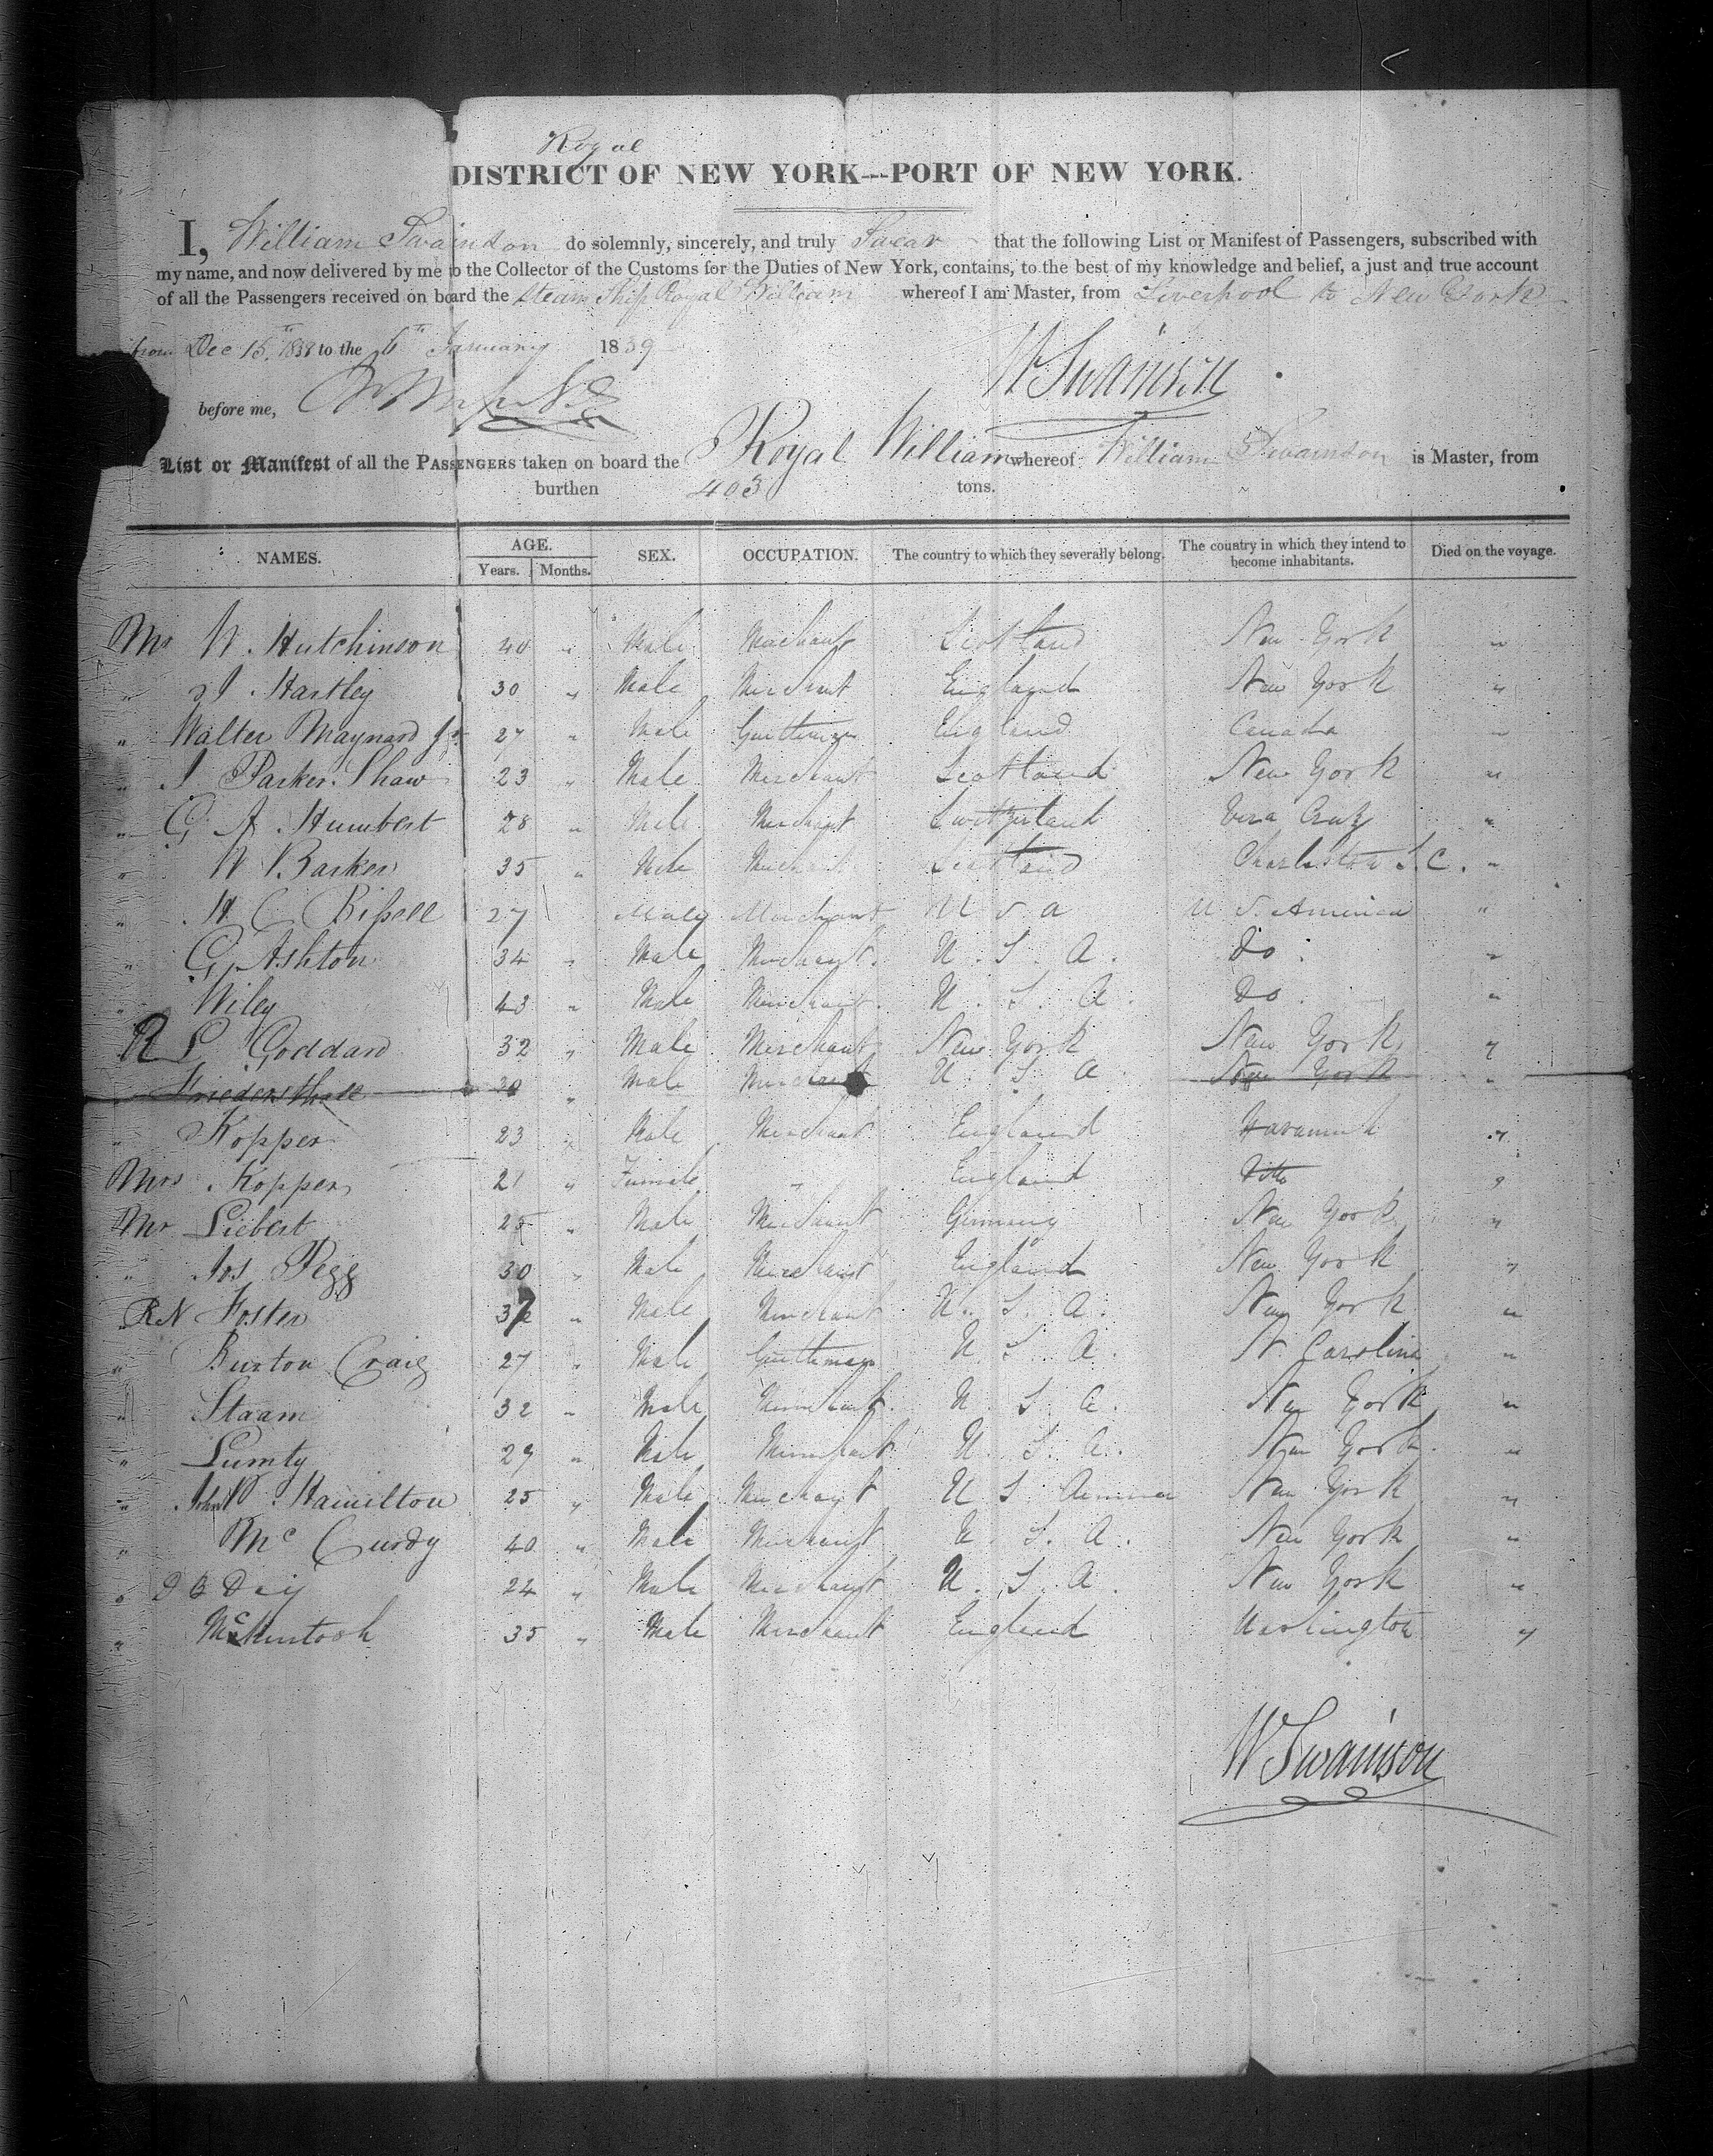 Royal
DISTRICT OF NEW YORK---PORT OF NEW YORK.
I, William Swainson do solemnly, sincerely, and truly Swear that the following List or Manifest of Passengers, subscribed with
my name, and now delivered by me to the Collector of the Customs for the Duties of New York, contains, to the best of my knowledge and belief, a just and true account
of all the Passengers received on board the Steam Ship Royal William whereof I am Master, from Liverpool to New York
from Dec 15th 1838 to the 6th January 1839
W Swainson
before me,
List or Manifest of all the PASSENGERS taken on board the Royal William whereof William Swainson is Master, from
burthen 403 tons.
NAMES. AGE. Years. Months. SEX. OCCUPATION. The country to which they severally belong. The country in which they intend to become inhabitants. Died on the voyage.
Mr W. Hutchinson 40 " Male Merchant Scotland New York "
" J. Hartley 30 " Male Merchant England New York "
" Walter Maynard Jr. 27 " Male Gentleman England Canada "
" J Parker Shaw 23 " Male Merchant Scotland New York "
" G A. Humbert 28 " Male Merchant Switzerland Vera Cruz "
" W Barker 35 " Male Merchant Scotland Charleston S.C. "
" H C Bissell 27 Male Merchant U S A U S. America "
" G. Ashton 34 " Male Merchant. U. S. A. Do. "
" Wiley 43 " Male Merchant. U. S. A. Do. "
R S Goddard 32 " Male Merchant New York New York "
Friedersthale 30 " Male Merchant U. S. A New York "
" Kopper 23 " Male Merchant England Havannah "
Mrs Kopper 21 " Female " England Ditto "
Mr Liebert 25 " Male Merchant Germany New York "
" Jos Pegg 30 " Male Merchant England New York "
R N Foster 37 " Male Merchant U. S. A. New York "
" Burton Craig 27 " Male Gentleman U S A. N. Carolina "
" Staam 32 " Male Merchant. U. S. A. New York "
" Lumty 29 " Male Merchant U. S. A. New York. "
" John P. Hamilton 25 " Male Merchant U S America New York "
" Mc Curdy 40 " Male Merchant U. S. A. New York "
" D B Dey 24 " Male Merchant U. S. A. New York "
" McKintosh 35 " Male Merchant England Washington "
W Swainson